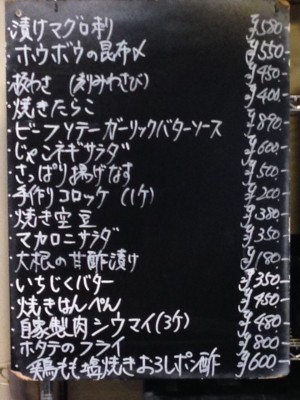 ・漬けマグロ刺 ¥580-
・ホウボウの昆布〆 ¥550-
・板わさ (刻みわさび) ¥450-
・焼きたらこ ¥400-
・ビーフソテーガーリックバターソース ¥890-
・じゃこネギサラダ ¥600-
・さっぱり揚げなす ¥500-
・手作りコロッケ (1ケ) ¥200-
・焼き空豆 ¥380-
・マカロニサラダ ¥350-
・大根の甘酢漬け ¥180-
・いちじくバター ¥350-
・焼きはんぺん ¥450-
・自家製肉シウマイ(3ケ) ¥480-
・ホタテのフライ ¥800-
・鶏もも塩焼きおろしポン酢 ¥600-